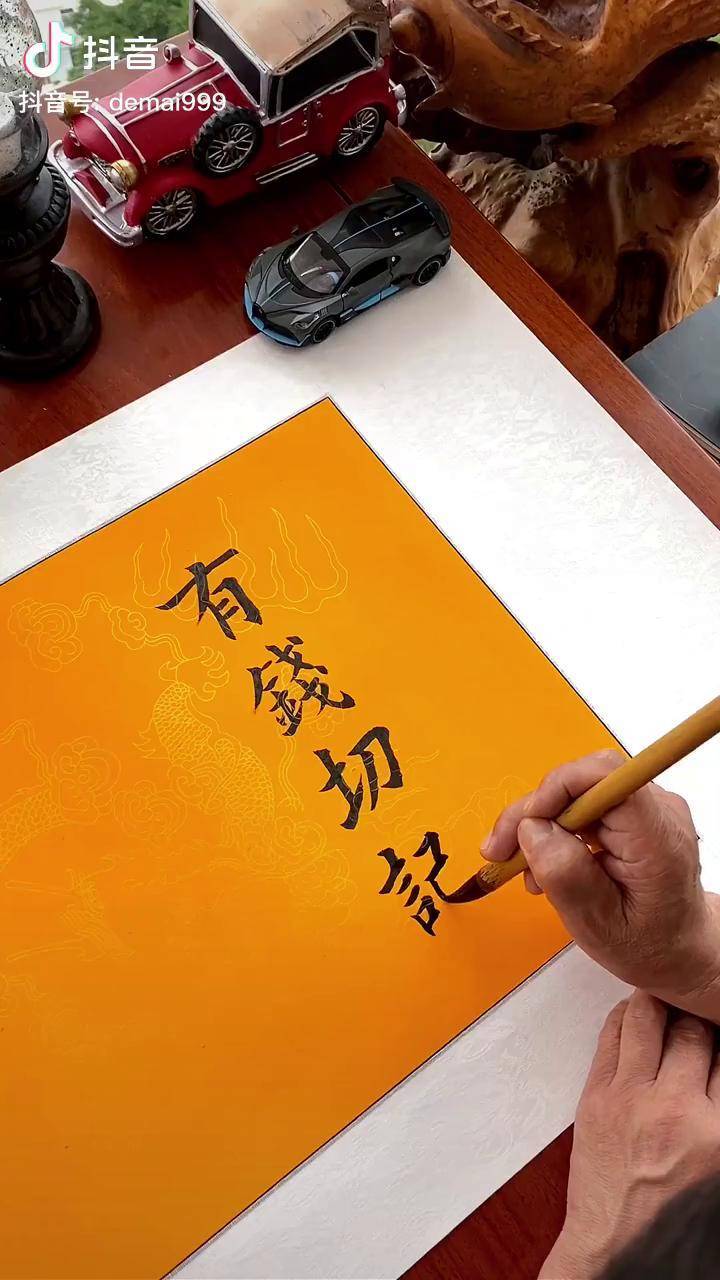 抖音
抖音号: demai999
有錢切記